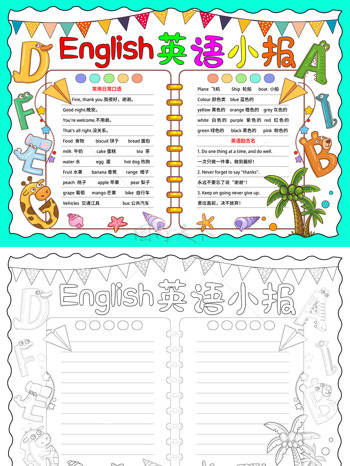 English英语小报
常用日常口语
Fine, thank you.我很好，谢谢。
Good night.晚安。
You're welcome.不用谢。
That's all right.没关系。
Food 食物 biscuit 饼干 bread 面包
milk 牛奶 cake蛋糕 tea 茶
water 水 egg 蛋 hot dog 热狗
Fruit 水果 banana 香蕉 range 橙子
peach 桃子 apple 苹果 pear 梨子
grape 葡萄 mango芒果 bike 自行车
Vehicles 交通工具 bus 公共汽车
Plane 飞机 Ship 轮船 boat 小船
Colour 颜色类 blue 蓝色的
yellow 黄色的 orange 橙色的 grey 灰色的
white 白色的 purple 紫色的 red 红色的
green 绿色的 black 黑色的 pink 粉色的
英语励志名
1. Do one thing at a time, and do well.
一次只做一件事，做到最好！
2. Never forget to say "thanks".
永远不要忘了说"谢谢"！
3. Keep on going never give up.
勇往直前，决不放弃！
English英语小报